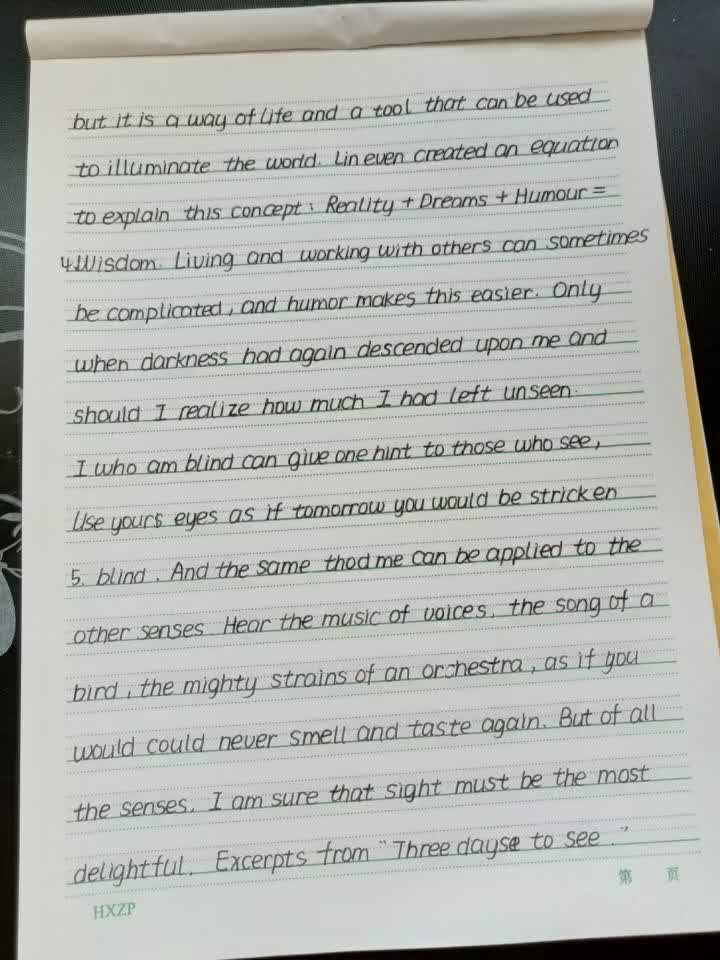 but it is a way of life and a tool that can be used
to illuminate the world. Lin even created an equation
to explain this concept: Reality + Dreams + Humour =
4.Wisdom. Living and working with others can sometimes
be complicated, and humor makes this easier. Only
when darkness had again descended upon me and
should I realize how much I had left unseen.
I who am blind can give one hint to those who see,
Use yours eyes as if tomorrow you would be stricken
5. blind. And the same thod me can be applied to the
other senses Hear the music of voices, the song of a
bird, the mighty strains of an orchestra, as if you
would could never smell and taste again. But of all
the senses. I am sure that sight must be the most
delightful. Excerpts from "Three dayse to see."
第 页
HXZP